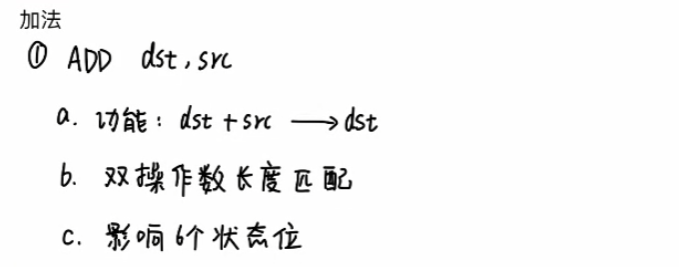 加法
① ADD dst, src
a. 功能: dst + src ⟶ dst
b. 双操作数长度匹配
c. 影响6个状态位